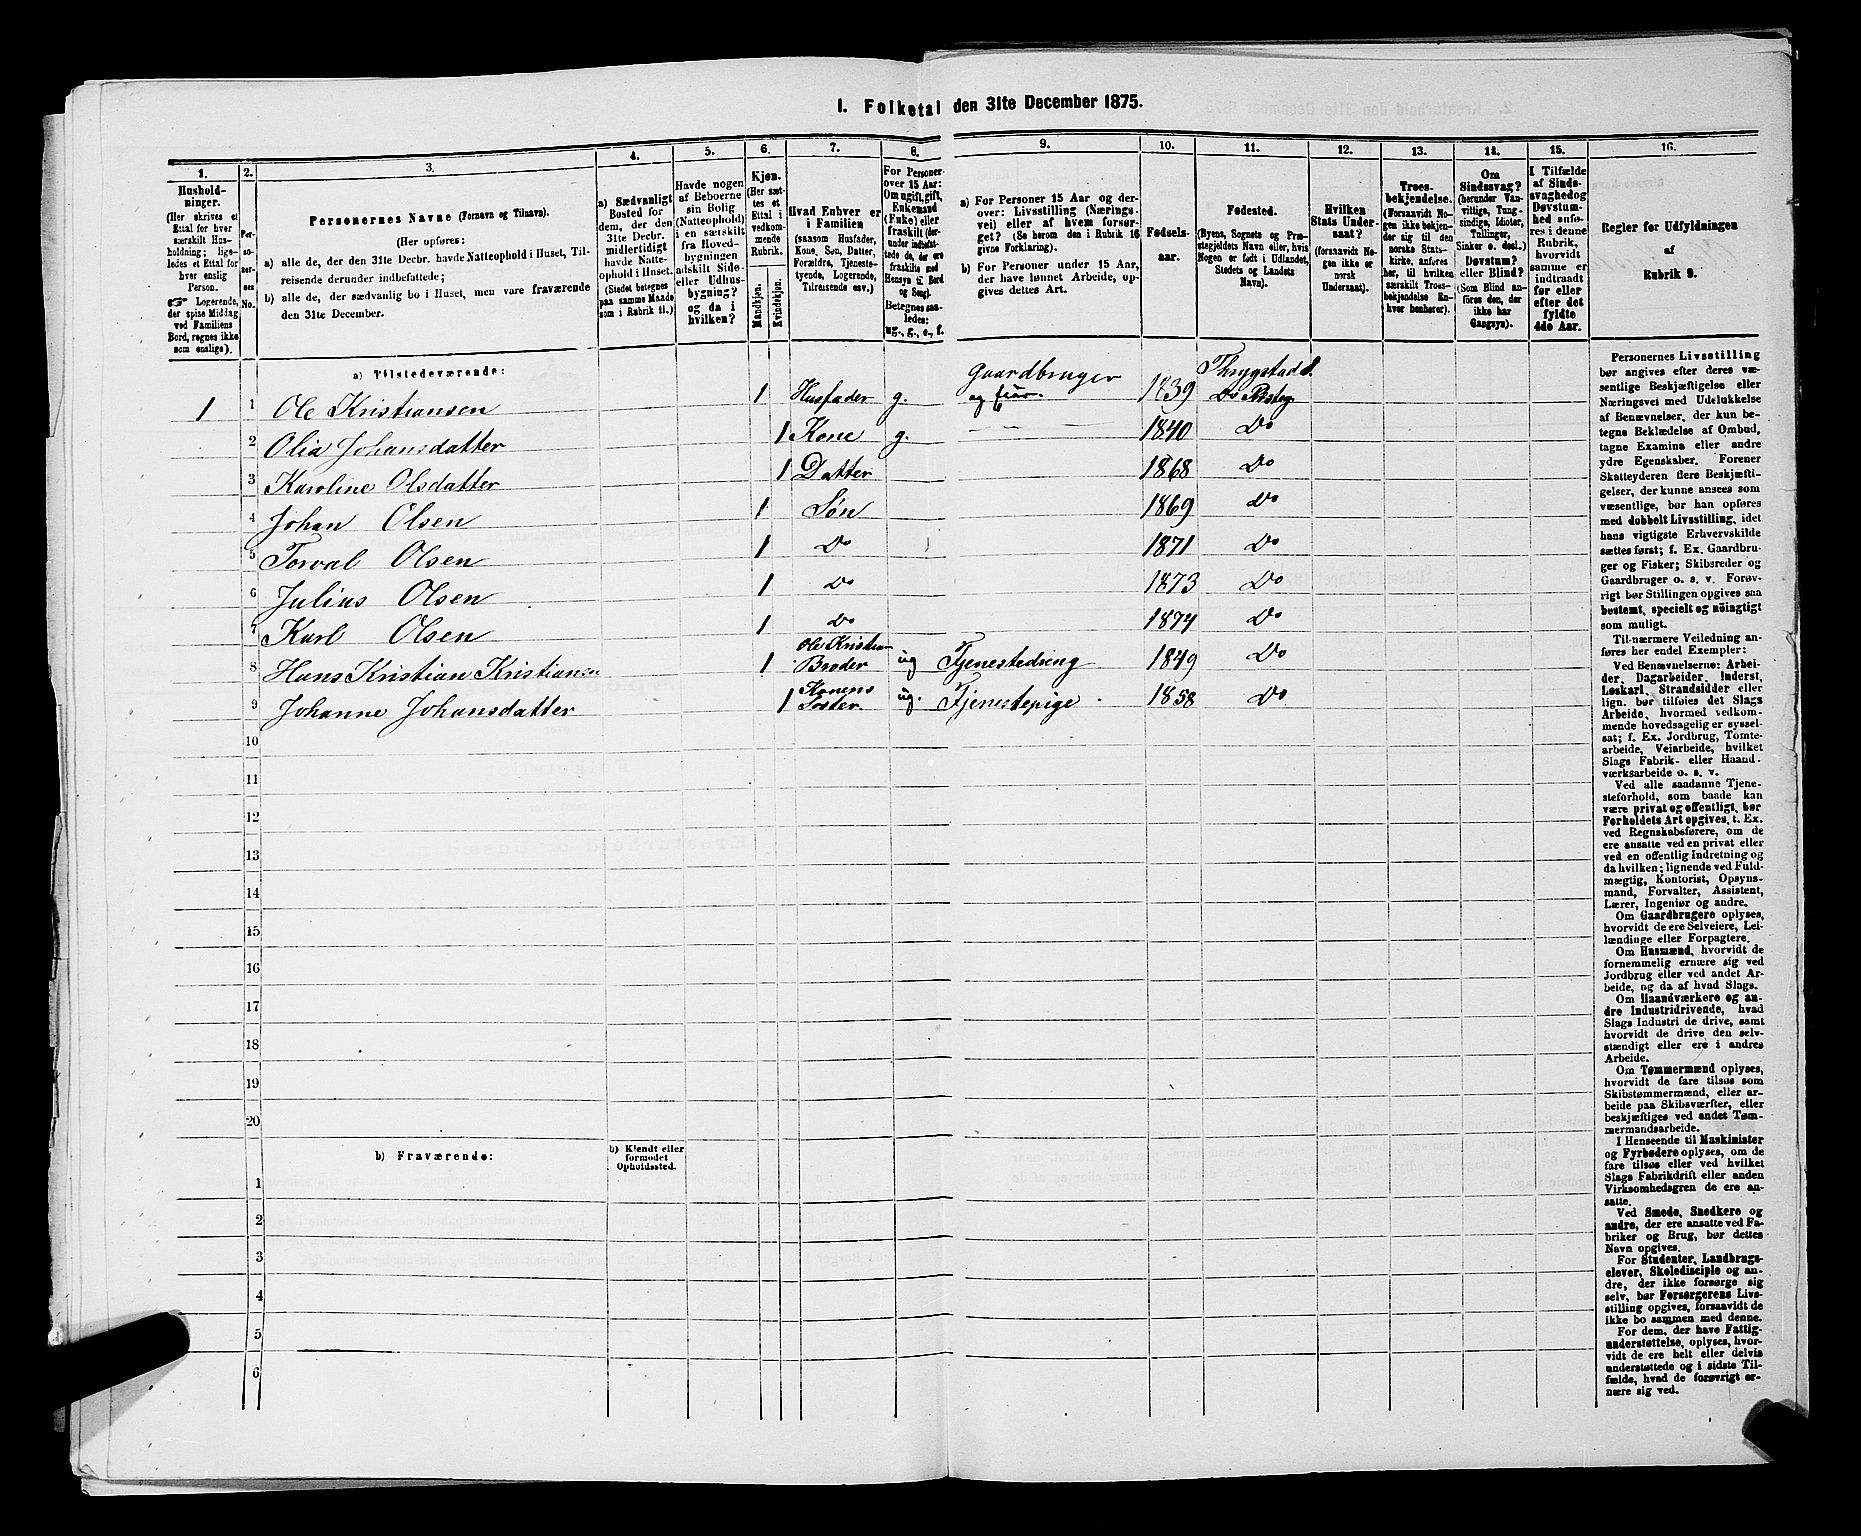 I. Folketal den 31te December 1875.
1.
2.
3.
4.
5.
6.
7.
8.
9.
10.
11.
12.
13.
14.
15.
16.
Hushold-
ninger.
(Her skrives et
Ettal for hver
særskilt Hus-
holdning; lige-
ledes et Ettal for
hver enslig
Person.
☛ Logerende,
der spise Middag
ved Familiens
Bord, regnes ikke
som enslige).
Per-
so-
ner-
nes
No.
Personernes Navne (Fornavn og Tilnavn).
(Her opføres:
a) alle de, der den 31te Decbr. havde Natteophold i Huset, Til-
reisende derunder indbefattede;
b) alle de, der sædvanlig bo i Huset, men vare fraværende
den 31te December.
a) Sædvanligt
Bosted for
dem, der den
31te Decbr.
midlertidigt
havde Natte-
ophold i Huset.
(Stedet betegnes
paa samme Maade
som i Rubrik 11.)
Havde nogen
af Beboerne
sin Bolig
(Natteophold)
i en særskilt
fra Hoved-
bygningen
adskilt Side-
eller Udhus-
bygning?
og da i
hvilken?
Kjøn.
(Her sæt-
tes et
Ettal i
vedkom-
mende
Rubrik.
Mandkjøn.
Kvindekjøn.
Hvad Enhver er
i Familien
(saasom Husfader,
Kone, Søn, Datter,
Forældre, Tjeneste-
tyende, Logerende,
Tilreisende osv.)
For Personer
over 15 Aar:
Om ugift, gift,
Enkemand
(Enke) eller
fraskilt (der-
under indbefat-
tede de, der ere
fraskilte med
Hensyn til Bord
og Seng).
Betegnes saa-
ledes:
ug., g., e., f.
a) For Personer 15 Aar og der-
over: Livsstilling (Nærings-
vei) eller af hvem forsør-
get? (Se herom den i Rubrik 16
givne Forklaring).
b) For Personer under 15 Aar,
der have lønnet Arbeide, op-
gives dettes Art.
Fødsels-
aar.
Fødested.
(Byens, Sognets og Præ-
stegjeldets Navn eller, hvis
Nogen er født i Udlandet,
Stedets og Landets
Navn).
Hvilken
Stats Under-
saat?
(forsaavidt No-
gen ikke er
norsk
Undersaat).
Troes-
bekjendelse.
(Forsaavidt No-
gen ikke bekjen-
der sig til den
norske Stats-
kirke, anføres
her, til hvilken
særskilt Troes-
bekjendelse En-
hver henhører).
Om
Sindssvag?
(herunder Van-
vittige, Tung-
sindige, Idioter,
Tullinger,
Sinker o. desl.)
Døvstum?
eller Blind?
(Som Blind an-
føres den, der
ikke har
Gangsyn).
I Tilfælde
af Sinds-
svaghedog
Døvstum-
hed anfø-
res i denne
Rubrik,
hvorvidt
samme er
indtraadt
før eller
efter det
fyldte
4de Aar.
Regler for Udfyldningen
af
Rubrik 9.
a) Tilstedeværende:
1 1 Ole Kristiansen 1 Husfader g. Gaardbruger og Eier. 1839 Thrygstads Do Præsteg.
2 Olia Johansdatter 1 Kone g. 1840 Do
3 Karoline Olsdatter 1 Datter 1868 Do
4 Johan Olsen 1 Søn 1869 Do
5 Torval Olsen 1 Do 1871 Do
6 Julius Olsen 1 Do 1873 Do
7 Karl Olsen 1 Do 1874 Do
8 Hans Kristian Kristiansen 1 Ole Kristian Broder ug Tjenestedreng 1849 Do
9 Johanne Johansdatter 1 Konens Søster ug. Tjenestepige 1858 Do
10
11
12
13
14
15
16
17
18
19
20
b) Fraværende:
b) Kjendt eller
formodet
Opholdssted.
1
2
3
4
5
6
Personernes Livsstilling
bør angives efter deres væ-
sentlige Beskjæftigelse eller
Næringsvei med Udelukkelse
af Benævnelser, der kun be-
tegne Beklædelse af Ombud,
tagne Examina eller andre
ydre Egenskaber. Forener
Skatteyderen flere Beskjæfti-
gelser, der kunne ansees som
væsentlige, bør han opføres
med dobbelt Livsstilling, idet
hans vigtigste Erhvervskilde
sættes først; f. Ex. Gaardbru-
ger og Fisker; Skibsreder og
Gaardbruger o. s. v. Forøv-
rigt bør Stillingen opgives saa
bestemt, specielt og nøiagtigt
som muligt.
Til nærmere Veiledning an-
føres her endel Exempler:
Ved Benævnelserne: Arbei-
der, Dagarbeider, Inderst,
Løskarl, Strandsidder eller
lign. bør tilføies det Slags
Arbeide, hvormed vedkom-
mende hovedsagelig er syssel-
sat; f. Ex. Jordbrug, Tomte-
arbeide, Veiarbeide, hvilket
Slags Fabrik- eller Haand-
værksarbeide o. s. v.
Ved alle saadanne Tjene-
steforhold, som baade kan
være privat og offentligt, bør
Forholdets Art opgives, t. Ex.
ved Regnskabsførere, om de
ere ansatte ved en privat eller
ved en offentlig Indretning og
da hvilken; lignende ved Fuld-
mægtig, Kontorist, Opsyns-
mand, Forvalter, Assistent,
Lærer, Ingeniør og andre.
Om Gaardbrugere oplyses,
hvorvidt de ere Selveiere, Lei-
lændinge eller Forpagtere.
Om Husmænd, hvorvidt de
fornemmelig ernære sig ved
Jordbrug eller ved andet Ar-
beide, og da af hvad Slags.
Om Haandværkere og an-
dre Industridrivende, hvad
Slags Industri de drive, samt
hvorvidt de drive den selv-
stændigt eller ere i andres
Arbeide.
Om Tømmermænd oplyses,
hvorvidt de fare tilsøs som
Skibstømmermænd, eller ar-
beide paa Skibsværfter, eller
beskjæftiges ved andet Tøm-
mermandsarbeide.
I Henseende til Maskinister
og Fyrbødere oplyses, om de
fare tilsøs eller ved hvilket
Slags Fabrikdrift eller anden
Virksomhedsgren de ere an-
satte.
Ved Smede, Snedkere og
andre, der ere ansatte ved Fa-
briker og Brug, bør dettes
Navn opgives.
For Studenter, Landbrugs-
elever, Skoledisciple og an-
dre, der ikke forsørge sig
selv, bør Forsørgerens Livs-
stilling opgives, forsaavidt de
ikke bo sammen med denne.
For dem, der have Fattig-
understøttelse, oplyses, hvor-
vidt de ere helt eller delvis
understøttede og i sidste Til-
fælde, hvad de forøvrigt er-
nære sig ved.